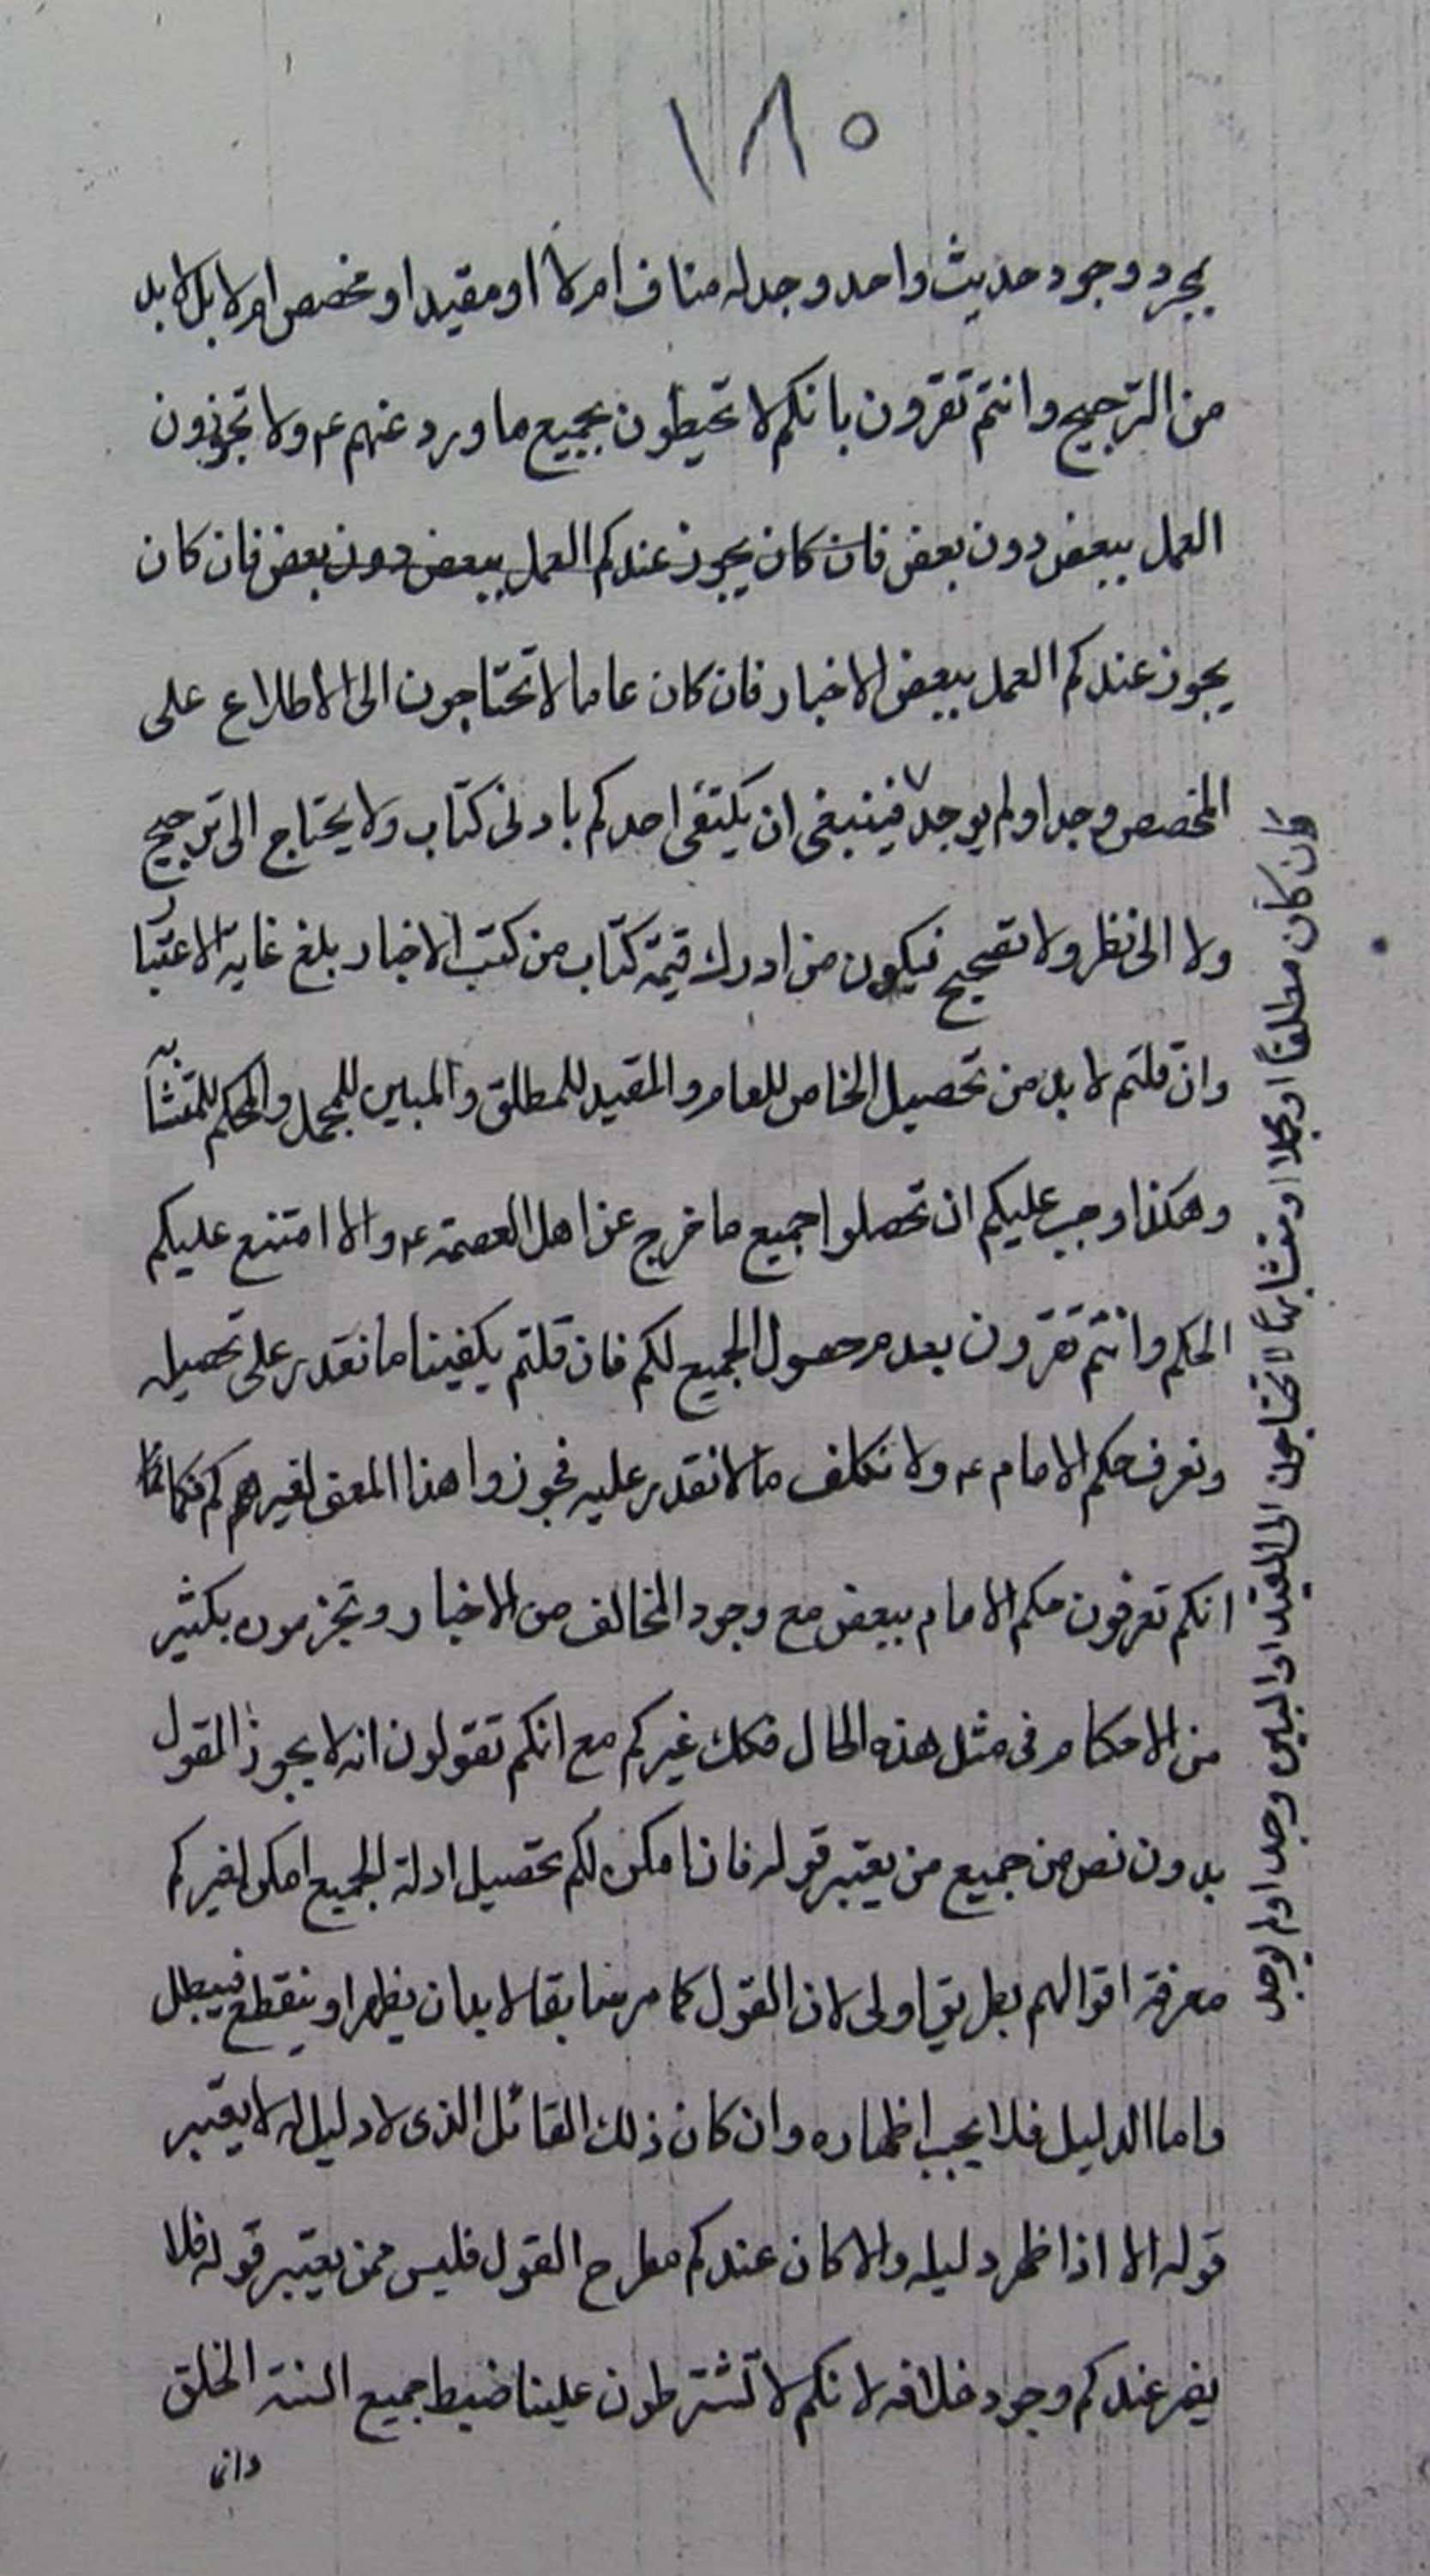 ١٨٥
بمجرد وجود حديث واحد وجد له مناف ام لا او مقيد او مخصص ام لا بل لا بد
من الترجيح وانتم تقرون بانكم لا تحيطون بجميع ما ورد عنهم ع ولا تجوزون
العمل ببعض دون بعض فان كان يجوز عندكم العمل ببعض دون بعض فان كان
يجوز عندكم العمل ببعض الاخبار فان كان عاما لا تحتاجون الى الاطلاع على
المخصص وجد او لم يوجد فينبغى ان يكتفى احدكم بادنى كتاب ولا يحتاج الى ترجيح
ولا الى نظر ولا تصحيح فيكون من ادرك قيمة كتاب من كتب الاخبار بلغ غاية الاعتبار
وان قلتم لا بد من تحصيل الخاص للعام والمقيد للمطلق والمبين للمجمل والمحكم للمتشابه
وهكذا وجب عليكم ان تحصلوا جميع ما خرج عن اهل العصمة ع والا امتنع عليكم
الحكم وانتم تقرون بعدم حصول الجميع لكم فان قلتم يكفينا ما نقدر على تحصيله
ونعرف حكم الامام ع ولا نكلف ما لا نقدر عليه فجوزوا هذا المعنى لغيركم فكما
انكم تعرفون حكم الامام ببعض مع وجود المخالف من الاخبار وتجزمون بكثير
من الاحكام فى مثل هذه الحال فكك غيركم مع انكم تقولون انه لا يجوز القول
بدون نص من جميع من يعتبر قوله فاذا امكن لكم تحصيل ادلة الجميع امكن لغيركم
معرفة اقوالهم بطريق اولى لان القول كما مر سابقا لا بد ان يظهر او ينقطع فيبطل
واما الدليل فلا يجب اظهاره وان كان ذلك القائل الذى لا دليل له لا يعتبر
قوله الا اذا ظهر دليله والا كان عندكم مطرح القول فليس ممن يعتبر قوله فلا
يضر عندكم وجود خلافه لانكم لا تشترطون علينا ضبط جميع السنة الخلق
وان كان مطلقا او مجملا او متشابها لا تحتاجون الى المقيد او المبين وجد او لم يوجد